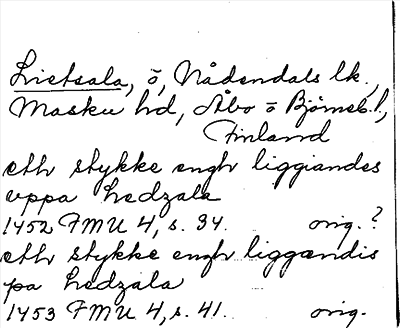 Lietsala, ö, Nådendals lk.,
Masku hd, Åbo o Björneb. l.,
Finland
eth stykke engh liggiandes
vppa ledzala
1452 FMU 4, s. 34. orig.?
eth stykke engh liggændis
pa ledzala
1453 FMU 4, s. 41. orig.